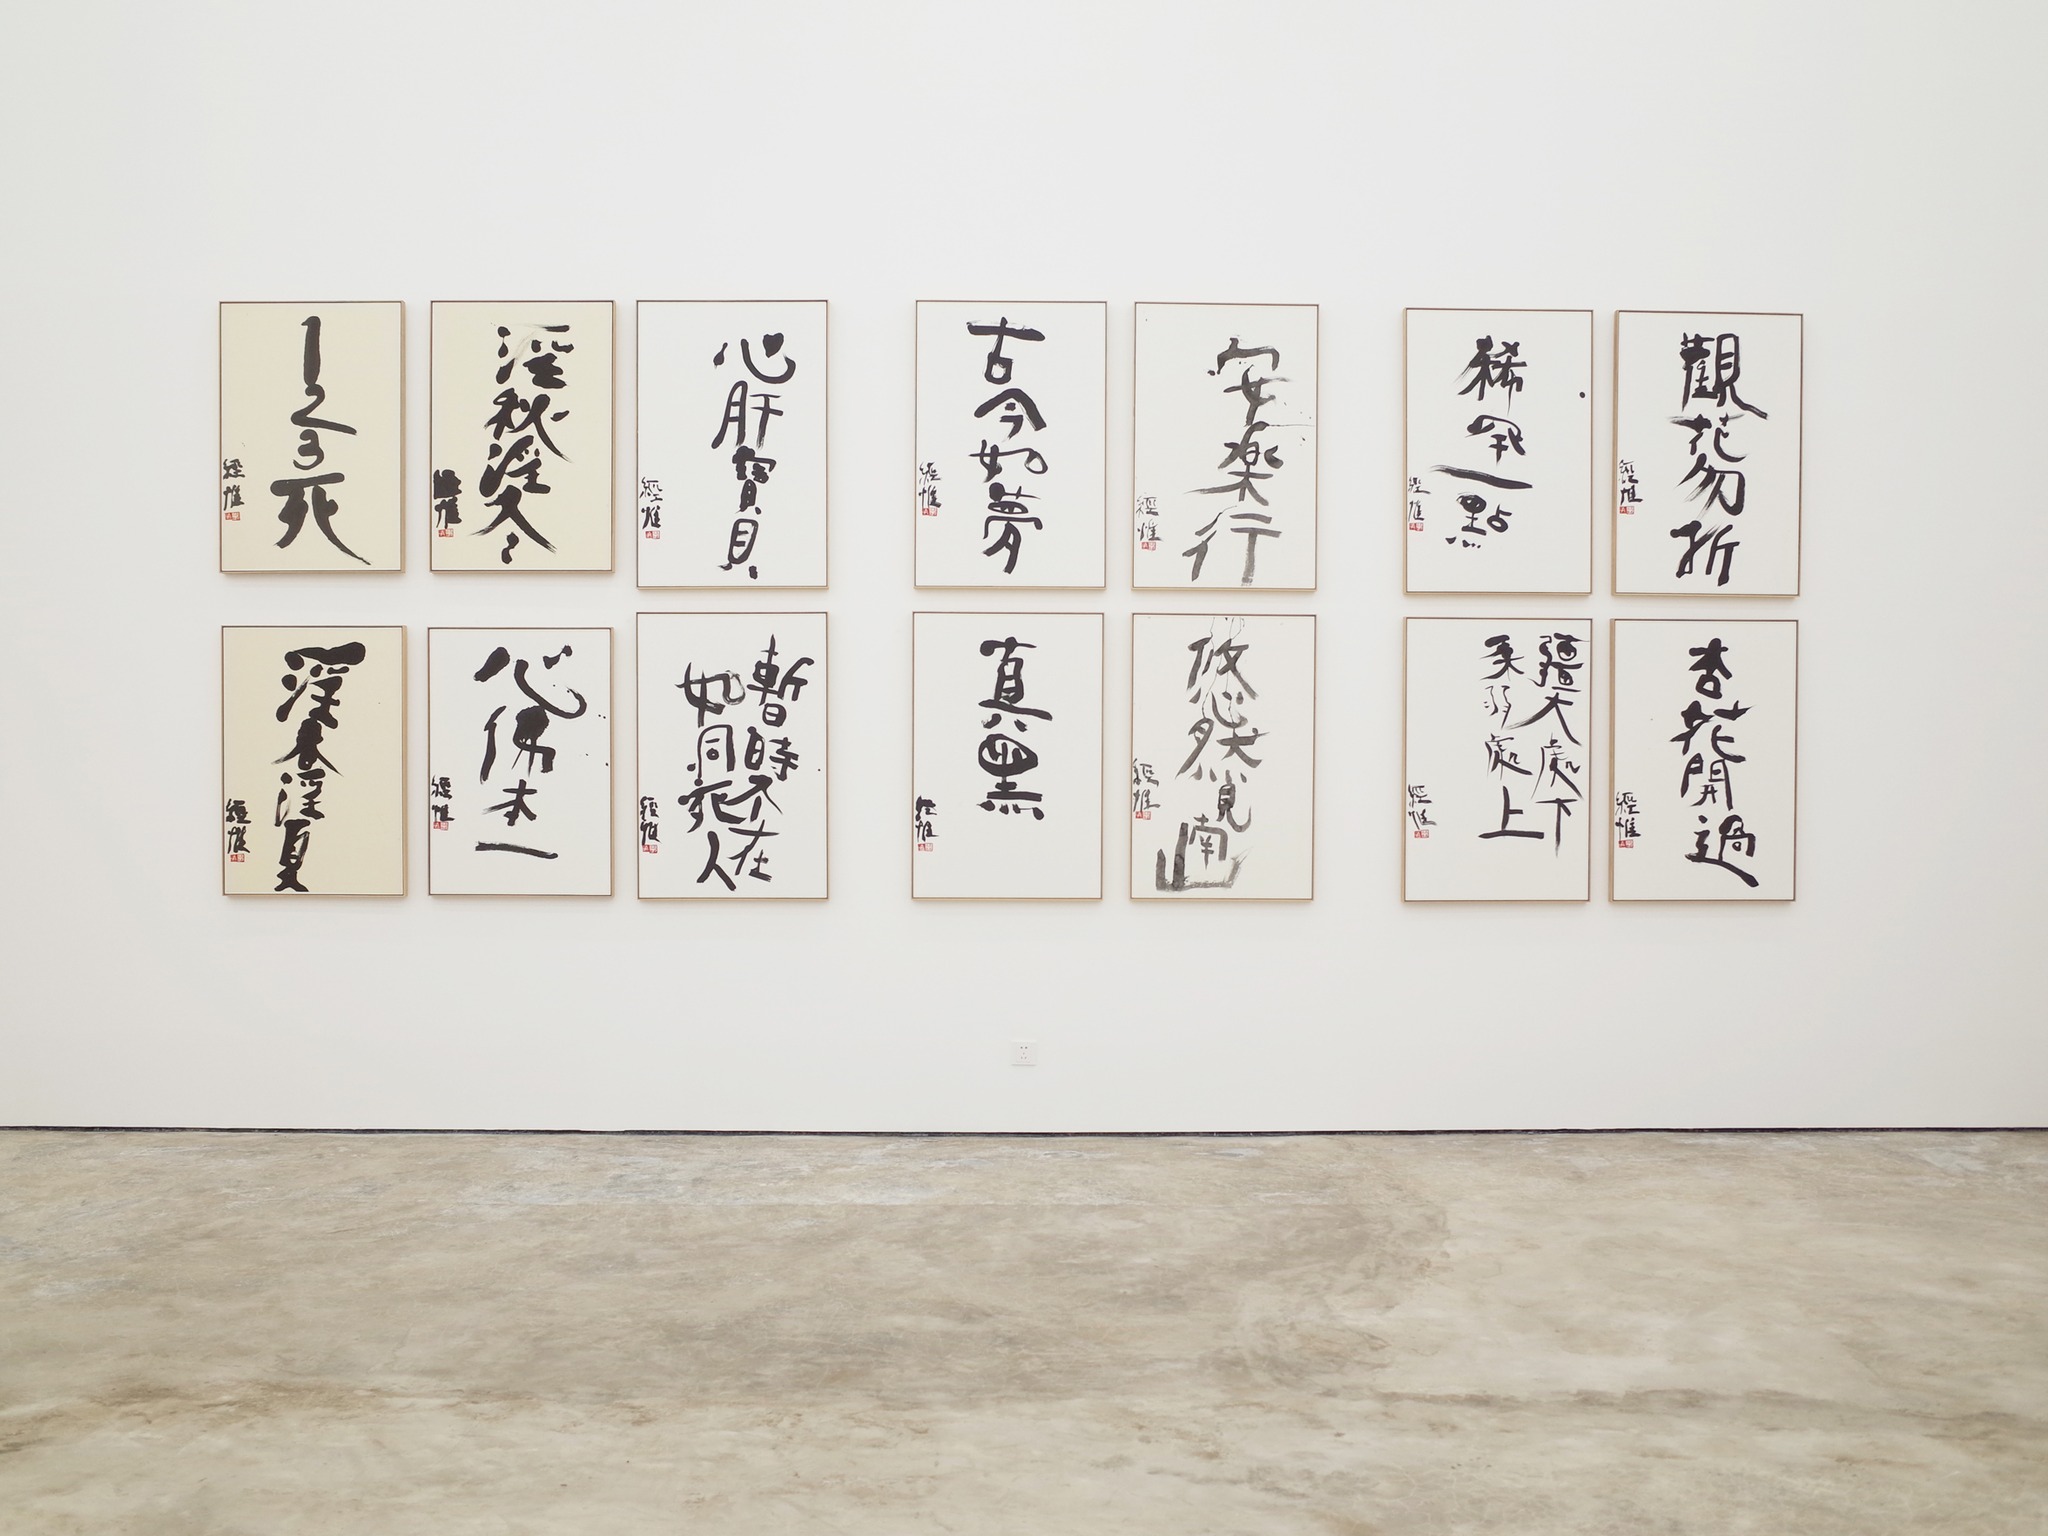 123死
經惟
淫秋淫冬
經惟
心肝寶貝
經惟
古今如夢
經惟
安楽行
經惟
稀罕一點
經惟
觀花勿折
經惟
淫春淫夏
經惟
心佛本一
經惟
暫時不在
如同死人
經惟
真黑
經惟
悠然見南山
經惟
彊大處下
柔弱處上
經惟
杏花開過
經惟